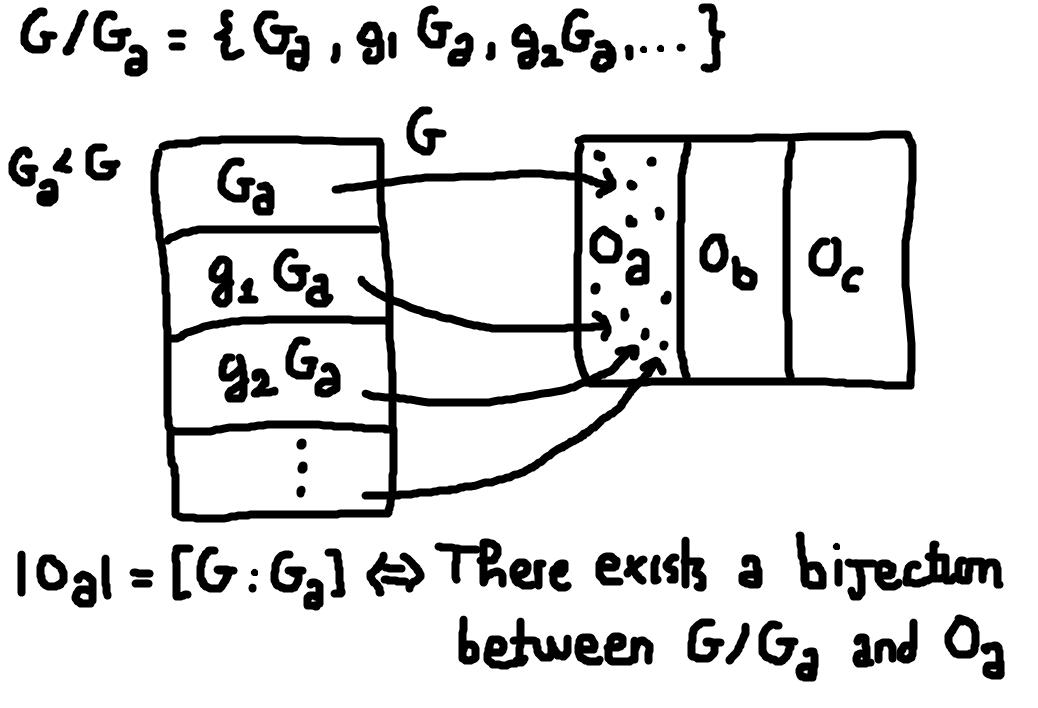 G/Gₐ = { Gₐ, g₁ Gₐ, g₂Gₐ, .... }
G
Gₐ < G
Gₐ
g₁ Gₐ
g₂ Gₐ
⋮
Oₐ O_b O_c
|Oₐ| = [G : Gₐ] ⇔ There exists a bijection
between G/Gₐ and Oₐ